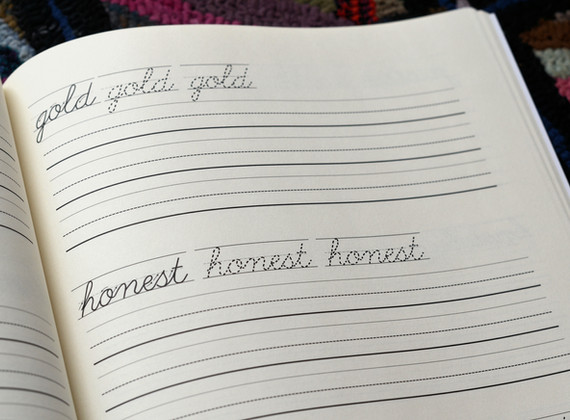 gold gold gold
honest honest honest